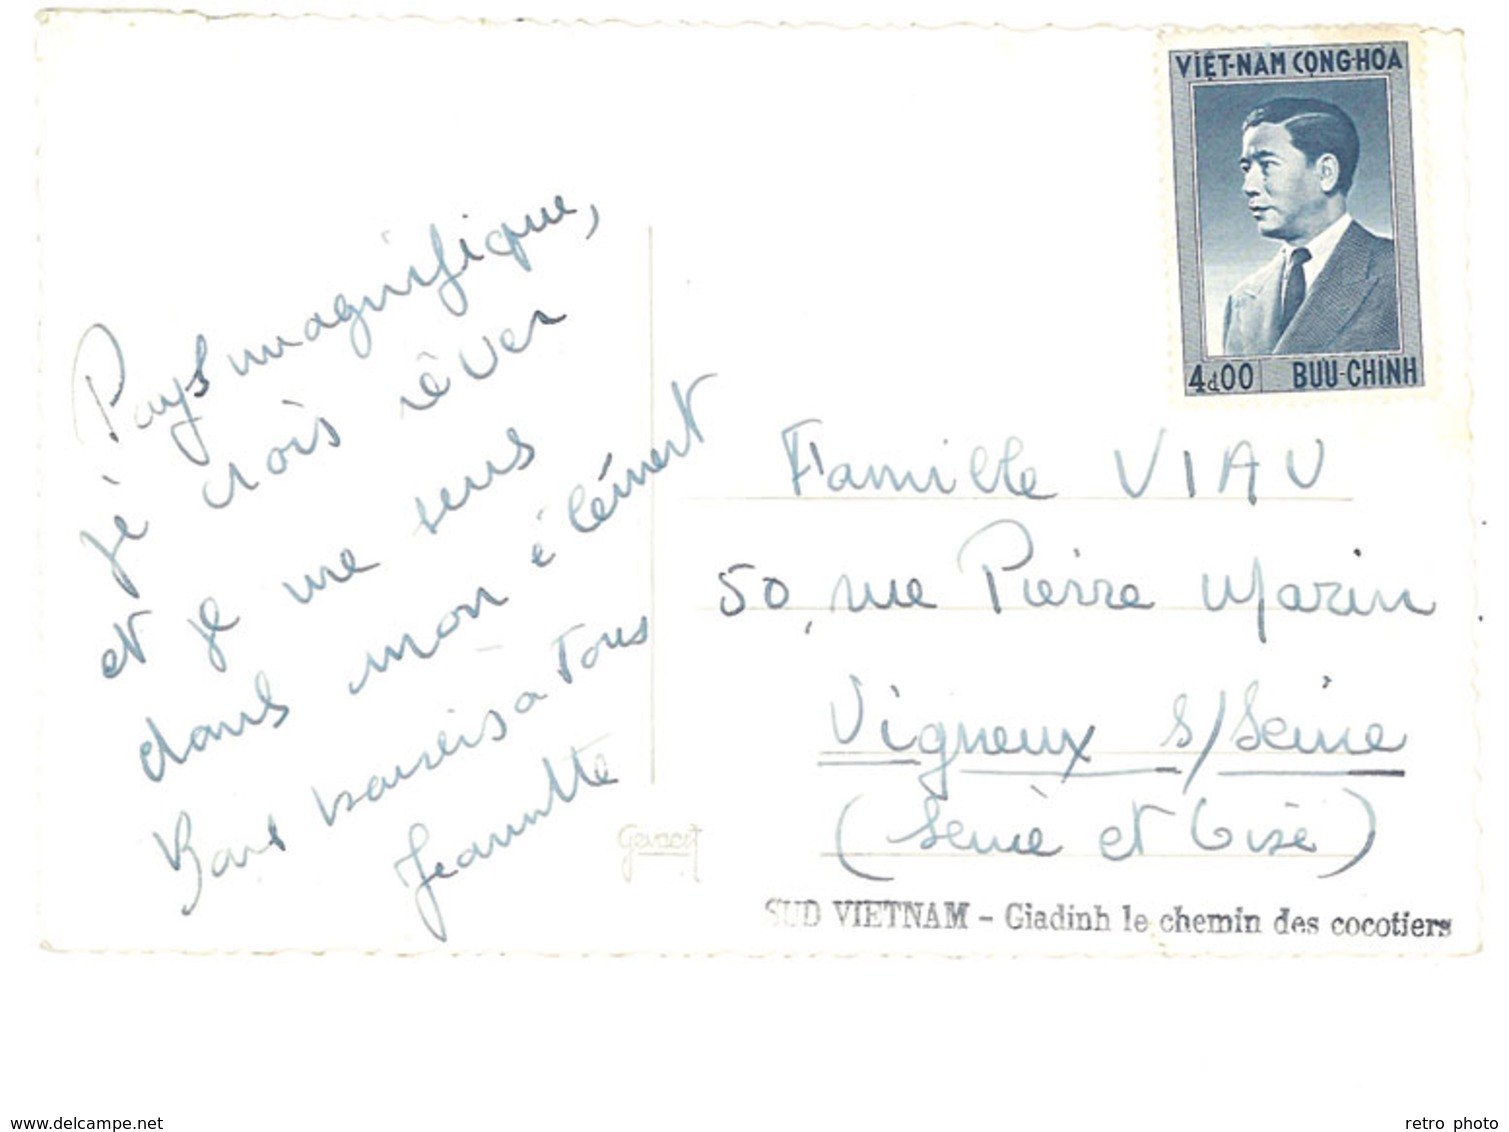 VIỆT-NAM CỘNG-HÒA
4đ00 BƯU-CHÍNH
Pays magnifique,
je crois rêver
et je me sens
dans mon élément
Bons baisers à Tous
Jeannette
Famille VIAU
50, rue Pierre Marin
Vigneux s/Seine
(Seine et Oise)
Gevaert
SUD VIETNAM - Giadinh le chemin des cocotiers
www.delcampe.net
retro photo